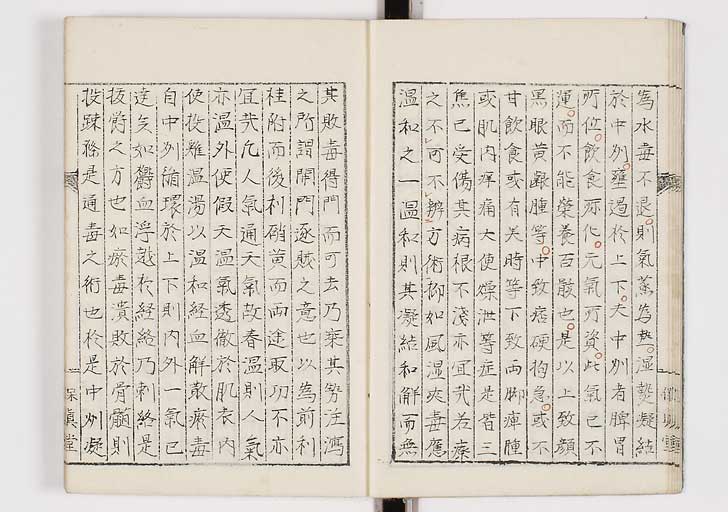 為水毒不退則氣蒸為熱湿熱凝結
於中州壅遏於上下夫中州者脾胃
所位飲食所化元氣所資此氣已不
運而不能榮養百骸也是以上致顔
黑眼黄齦腫等中致痞硬拘急或不
甘飲食或有失時等下致両脚痺腫
或肌肉痒痛大便燥泄等症是皆三
焦已受傷其病根不淺亦宜哉若療
之不可不辨方術抑如風湿夾毒應
温和之一温和則其凝結和解而無
其敗毒得門而可去乃乗其勢注瀉
之所謂開門逐賊之意也以為前利
桂附而後利硝黄而両途取功不亦
宜哉凡人氣通天氣故春温則人氣
亦温外便假天温氣透徹於肌表内
使投雄温湯以温和経血解散瘀毒
自中州循環於上下則内外一氣已
達矣如欝血浮越於経絡乃刺絡是
抜欝之方也如瘀毒潰敗於骨髄則
投踈滌是通毒之術也於是中州凝
保眞堂